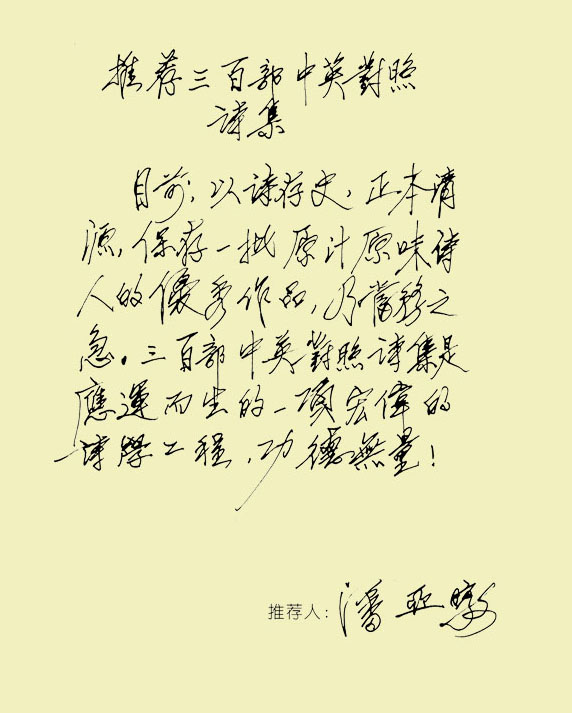 推荐三百部中英對照
诗集
目前，以诗存史，正本清
源，保存一批原汁原味诗
人的優秀作品，乃當務之
急。三百部中英對照诗集是
應運而生的一項宏偉的
诗學工程，功德無量！
推荐人：潘亚暾